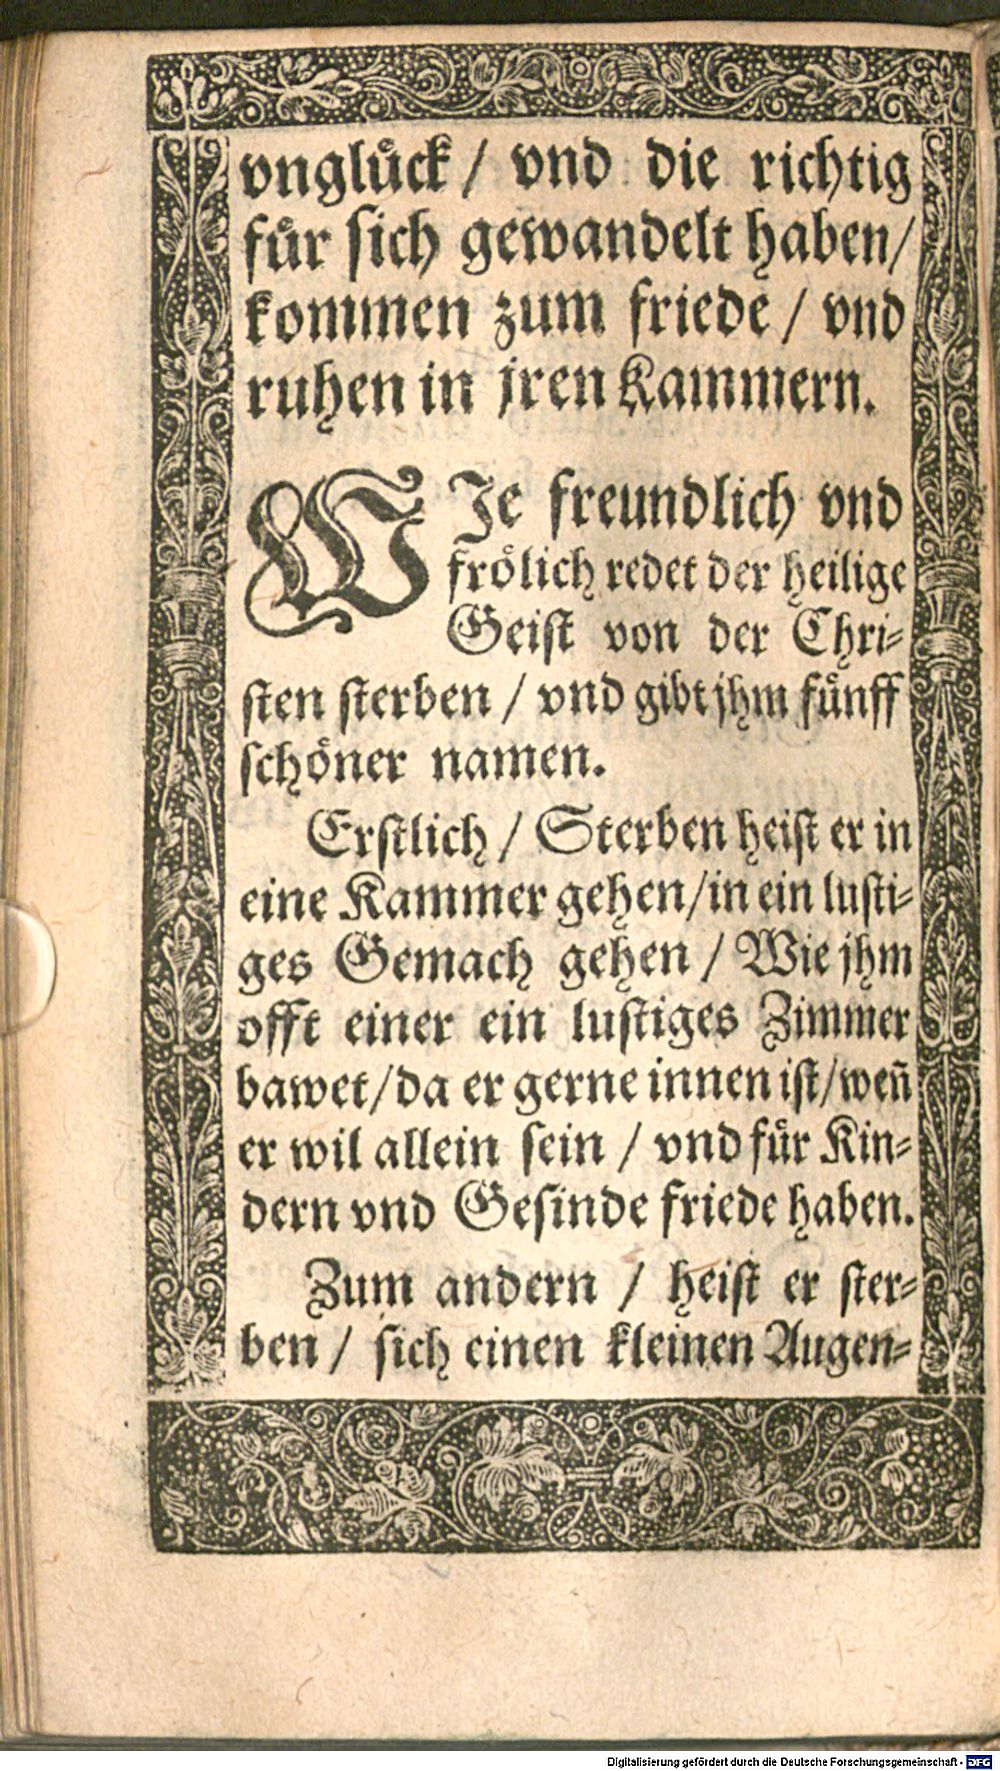 vnglůck / vnd die richtig
fůr sich gewandelt haben/
kommen zum friede / vnd
ruhen in jren Kammern.
WJe freundlich vnd
frölich redet der heilige
Geist von der Chri=
sten sterben / vnd gibt jhm fůnff
schöner namen.
Erstlich / Sterben heist er in
eine Kammer gehen/in ein lusti=
ges Gemach gehen / Wie jhm
offt einer ein lustiges Zimmer
bawet/da er gerne innen ist/weñ
er wil allein sein / vnd fůr Kin=
dern vnd Gesinde friede haben.
Zum andern / heist er ster=
ben / sich einen kleinen Augen=
Digitalisierung gefördert durch die Deutsche Forschungsgemeinschaft - DFG